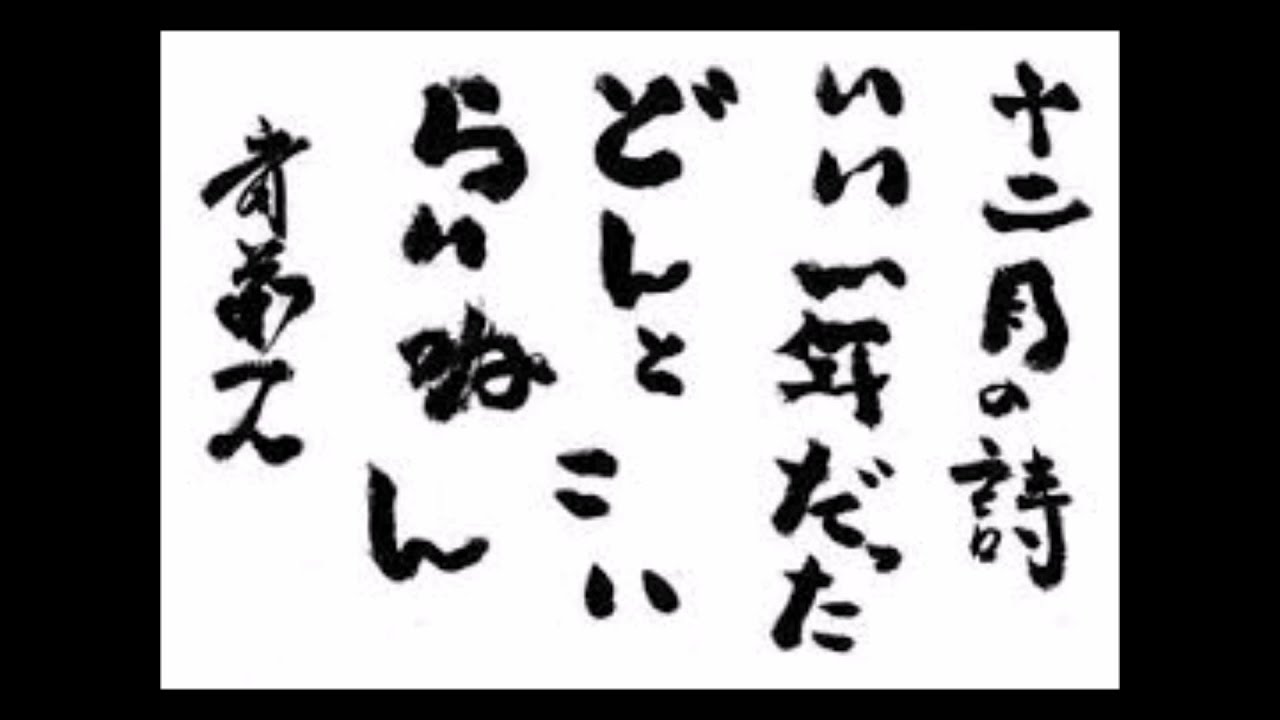 十二月の詩
いい一年だった
どんとこい
らいねん